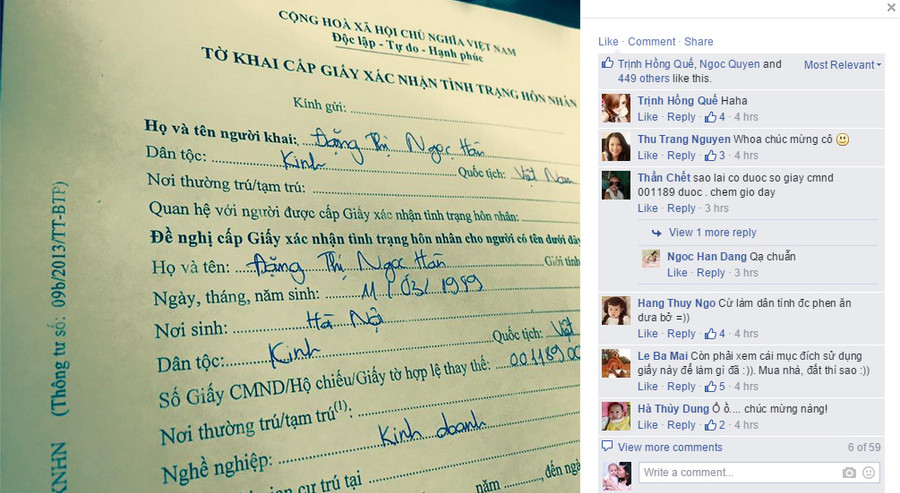 CỘNG HOÀ XÃ HỘI CHỦ NGHĨA VIỆT NAM
Độc lập - Tự do - Hạnh phúc
TỜ KHAI CẤP GIẤY XÁC NHẬN TÌNH TRẠNG HÔN NHÂN
Kính gửi:
Họ và tên người khai: Đặng Thị Ngọc Hân
Dân tộc: Kinh Quốc tịch: Việt Nam
Nơi thường trú/tạm trú:
Quan hệ với người được cấp Giấy xác nhận tình trạng hôn nhân:
Đề nghị cấp Giấy xác nhận tình trạng hôn nhân cho người có tên dưới đây
Họ và tên: Đặng Thị Ngọc Hân Giới tính
Ngày, tháng, năm sinh: 11/03/1989
Nơi sinh: Hà Nội
Dân tộc: Kinh Quốc tịch: Việt
Số Giấy CMND/Hộ chiếu/Giấy tờ hợp lệ thay thế: 00118900
Nơi thường trú/tạm trú(1):
Nghề nghiệp: Kinh doanh
cư trú tại năm, đến ngà
KNHN (Thông tư số: 09b/2013/TT-BTP)
Like · Comment · Share
Trịnh Hồng Quế, Ngoc Quyen and
449 others like this.
Most Relevant
Trịnh Hồng Quế Haha
Like · Reply · 4 · 4 hrs
Thu Trang Nguyen Whoa chúc mừng cô
Like · Reply · 3 · 4 hrs
Thần Chết sao lai co duoc so giay cmnd
001189 duoc . chem gio day
Like · Reply · 3 hrs
View 1 more reply
Ngoc Han Dang Qạ chuẫn
Like · Reply · 3 hrs
Hang Thuy Ngo Cứ làm dân tình đc phen ăn
dưa bở =))
Like · Reply · 4 · 4 hrs
Le Ba Mai Còn phải xem cái mục đích sử dụng
giấy này để làm gì đã :)). Mua nhà, đất thì sao :))
Like · Reply · 5 · 4 hrs
Hà Thùy Dung Ố ồ.... chúc mừng nàng!
Like · Reply · 2 · 4 hrs
View more comments
6 of 59
Write a comment...